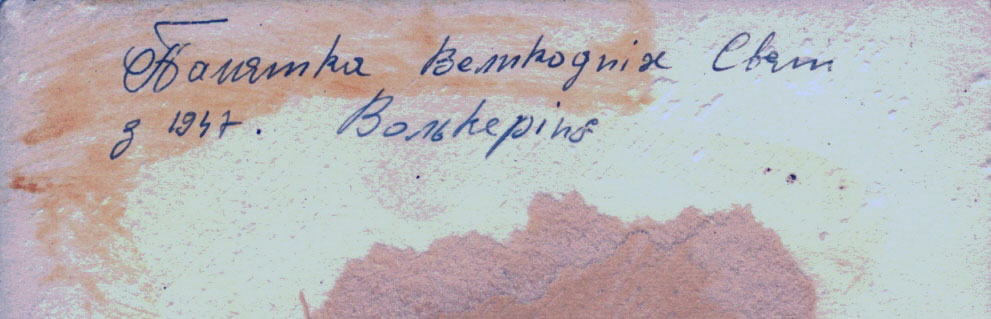 Памятка Великодніх Свят
з 1947. Волькерінг